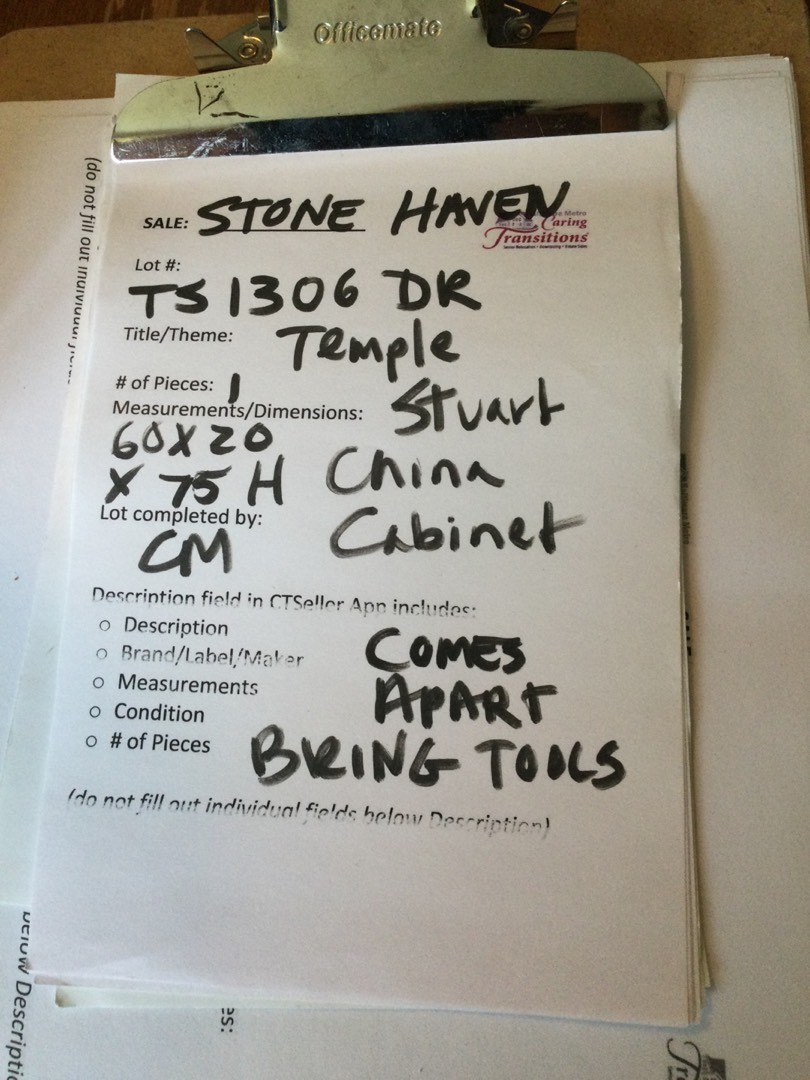 Officemate
SALE: STONE HAVEN
Metro
Caring
Transitions
Lot #:
TS 1306 DR
Title/Theme: Temple
# of Pieces: 1
Stuart
Measurements/Dimensions:
60 X 20
X 75 H
China
Lot completed by:
CM
Cabinet
Description field in CTSeller App includes:
○ Description
○ Brand/Label/Maker
COMES
○ Measurements
APART
○ Condition
○ # of Pieces
BRING TOOLS
(do not fill out individual fields below Description)
(do not fill out individual fields
below Descripti
es:
Tr